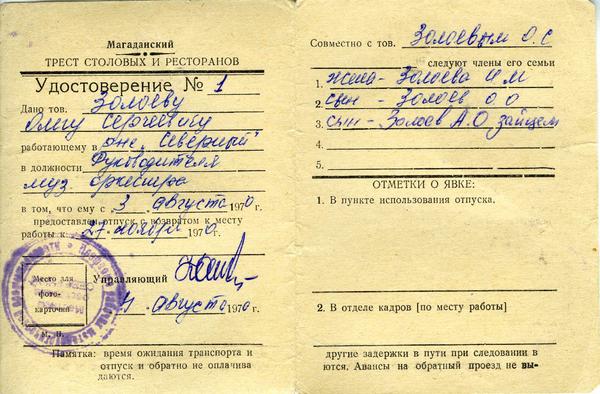 Магаданский
ТРЕСТ СТОЛОВЫХ И РЕСТОРАНОВ
Удостоверение № 1
Дано тов. Золоеву
Олегу Сергеевичу
работающему в рне. „Северный"
в должности Руководителя
муз. оркестра
в том, что ему с 3 августа 1970 г.
предоставлен отпуск с возвратом к месту
работы к 27 ноября 1970 г.
Место для
фото-
карточки
М. П.
Управляющий
4 августа 1970 г.
Памятка: время ожидания транспорта и
отпуск и обратно не оплачива
даются.
Совместно с тов. Золоевым О.С
следуют члены его семьи
1. жена - Золоева И М
2. сын - Золоев О О
3. сын - Золоев А.О. зайцем
4.
5.
ОТМЕТКИ О ЯВКЕ:
1. В пункте использования отпуска.
2. В отделе кадров [по месту работы]
другие задержки в пути при следовании в
ются. Авансы на обратный проезд не вы-